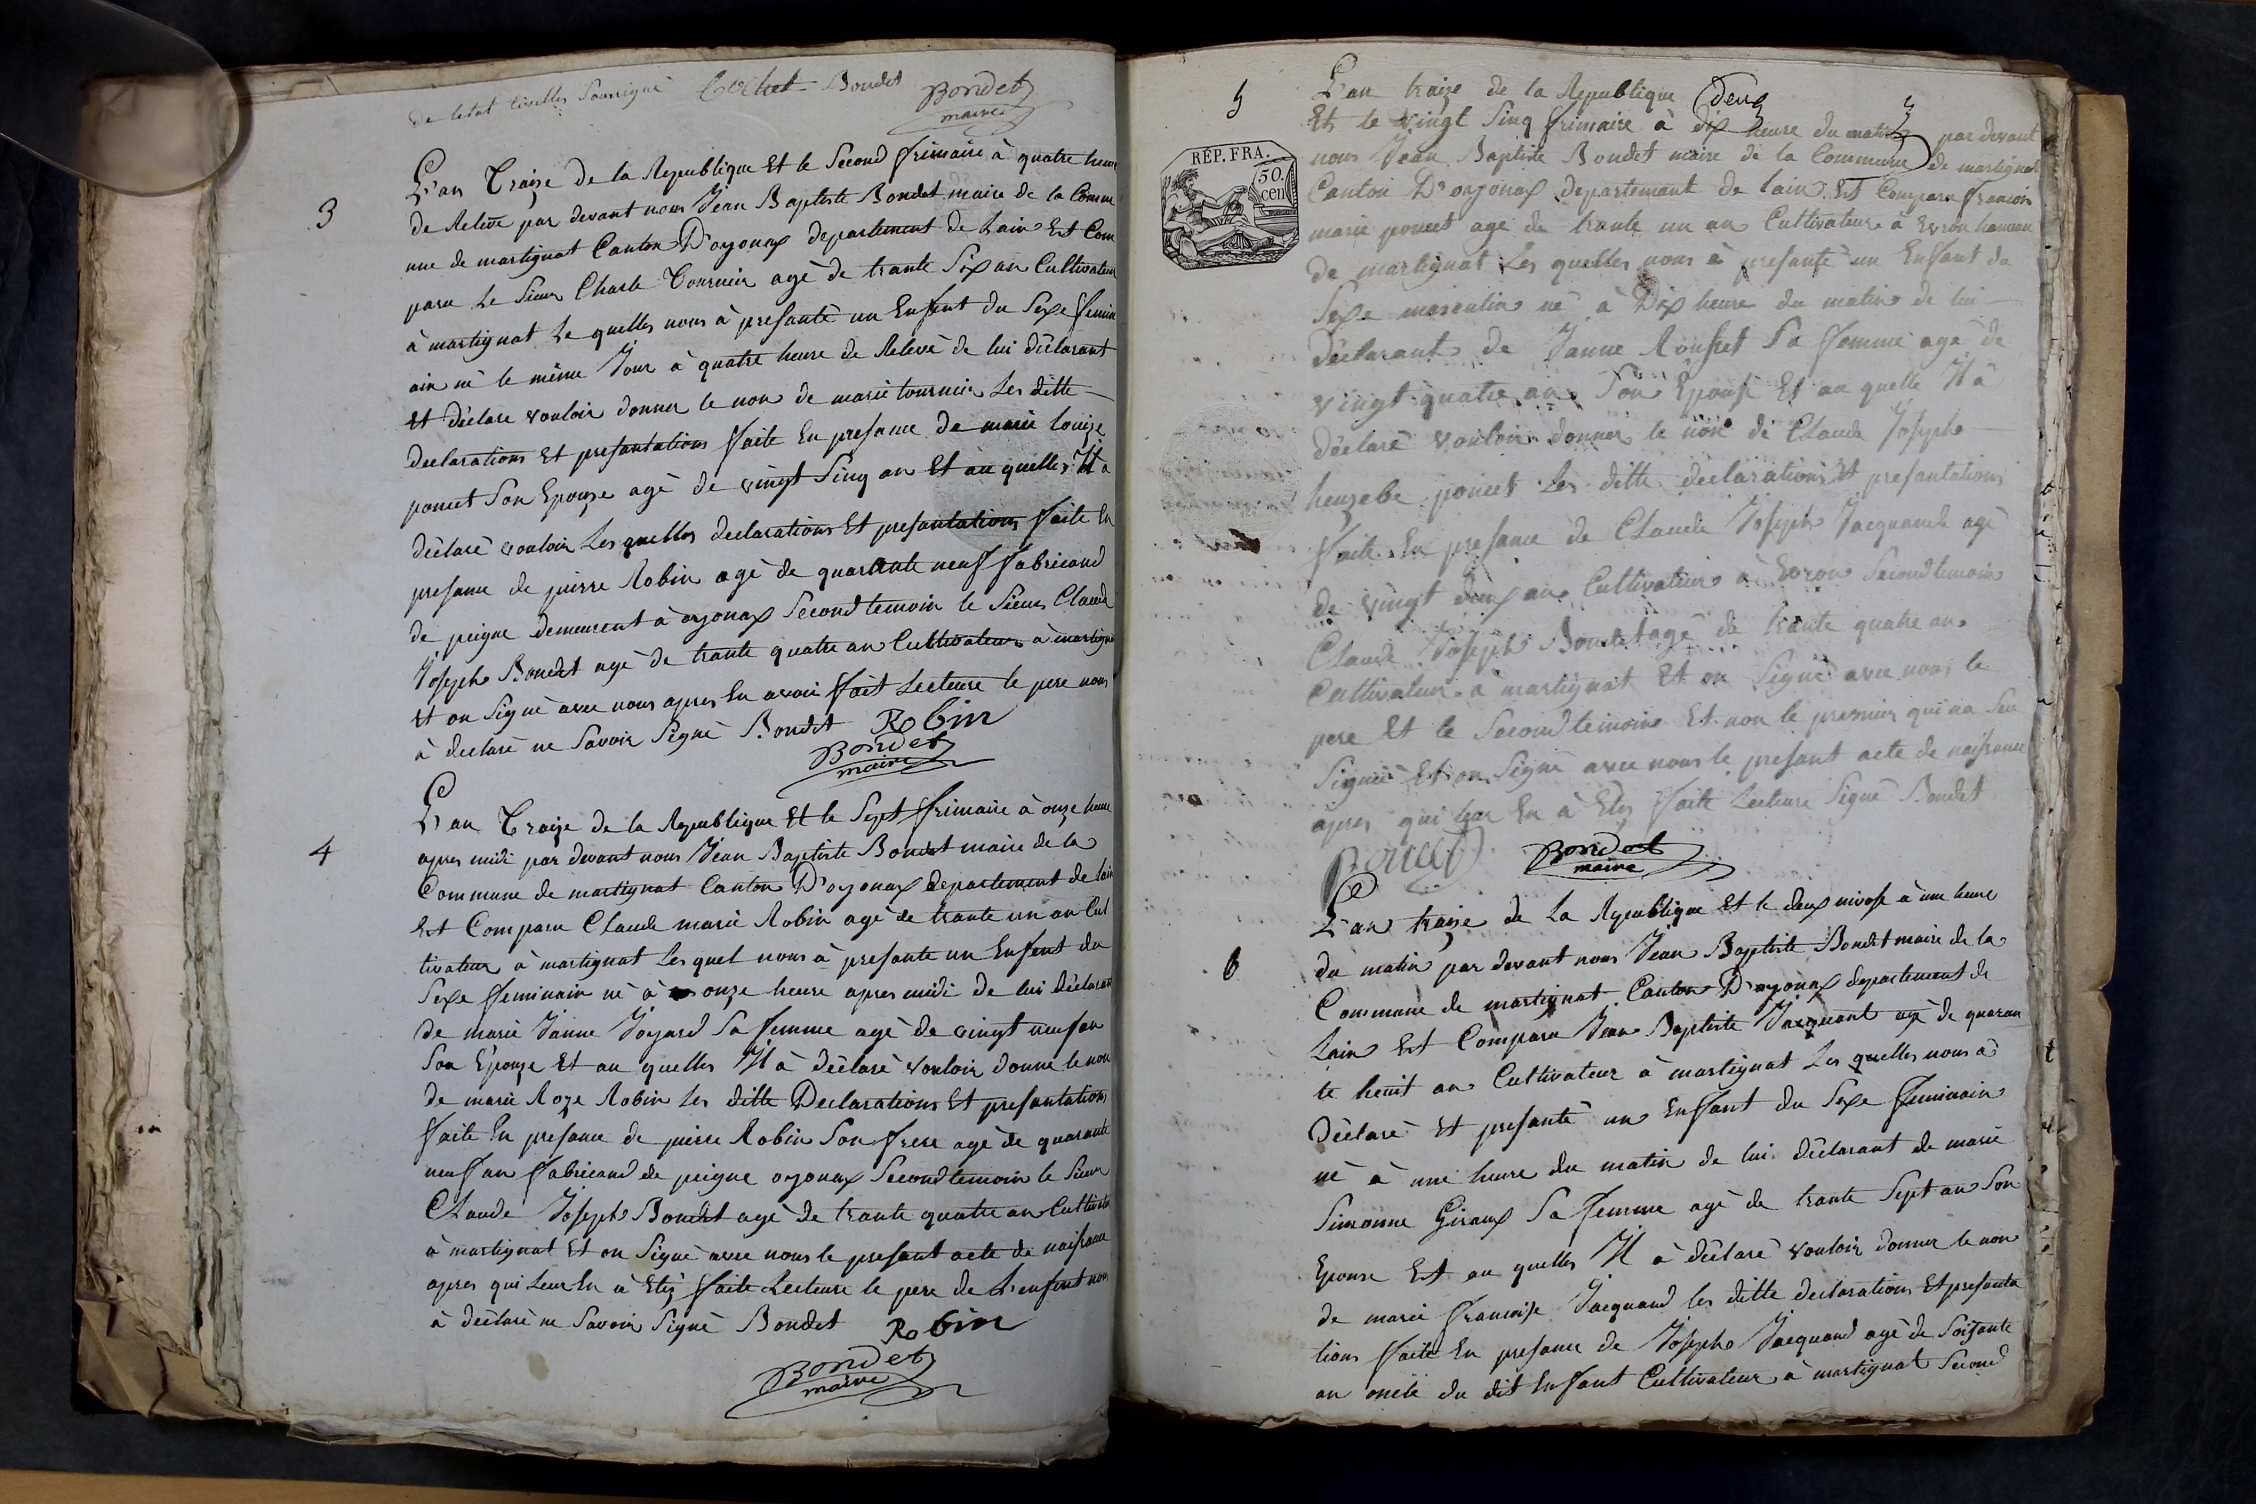 de letat civelles Soussigné Cochet Bondet Bondet
maire
3
L'an Traize de la Republique Et le Second frimaire à quatre heure
de Relevé par devant nous Jean Baptiste Bondet maire de la Commu
nue de martignat Canton D'oyonax departement de Lain Est Com
paru Le Sieur Charle Tournier agé de trante Six an Cultivateur
à martignat Le quelles nous à presanté un Enfent du Sexe femin
ain né le même Jour à quatre heure de Relevé de lui déclarant
Et déclare vouloir donner le non de marie tournier Les ditte
declarations Et presantations faite En presance de marie louize
poncet Son Epouze agé de vingt Sinq an Et au quelles Il a
déclaré vouloir Les quelles declarations Et presantations faite En
presance de pierre Robin agé de quarante neuf fabricand
de peigne demeurent à oyonax Second temoin le Sieur Claude
Joseph Bondet agé de trante quatre an Cultivateur à martigna
Et on Signé avec nous apres En avoir fait Lecteure le pere nous
à declaré ne Savoir Signé Bondet Robin
Bondet
maire
4
L'an Traize de la Republique Et le Sept frimaire à onze heure
apres midi par devant nous Jean Baptiste Bondet maire de la
Commune de martignat Canton D'oyonax departement de lain
Est Comparu Claude marie Robin agé de trante un an Cul
tivateur à martignat Les quel nous à presante un Enfent du
Sexe feminain né à onze heure apres midi de lui déclarant
de marie Janne Joyard Sa femme agé de vingt neuf an
Son Epouze Et au quelles Il à déclaré vouloir donné le non
de marie Roze Robin Les ditte Declarations Et presantations
faite En presance de pierre Robin Son frere agé de quarante
neuf an fabricand de peigne oyonax Second temoin le Sieur
Claude Joseph Bondet agé de trante quatre an Cultivate
à martignat Et on Signé avec nous le presant acte de naissance
apres qui Leur En à Etez faite Lecteure le pere de L'enfent nous
à déclaré ne Savoir Signé Bondet Robin
Bondet
maire
5
L'an traize de la Republique
Et le vingt Sinq frimaire à dix heure du matin par devant
RÉP. FRA.
50.
cen
nous Jean Baptiste Bondet maire de la Commune de martignat
Canton D'oyonax departemant de lain Est Comparu francois
marie poncet agé de trante un an Cultivateur à Evron hameau
de martignat Les quelles nous à presanté un Enfant du
Sexe masculin né à Dix heure du matin de lui
déclarant de Janne Rousset Sa femme agé de
vingt quatre an Son Epouse Et au quelle Il à
déclaré vouloir donner le non de Claude Joseph
heuzebe poncet Les ditte déclarations Et presantations
faite En presance de Claude Joseph Jacquand agé
de vingt deux an Cultivateur à Evron Second temoin
Claude Joseph Bondet agé de trante quatre an
Cultivateur à martignat Et on Signé avec nous le
pere Et le Second temoin Et non le premier qui na Seu
Signéé Et on Signé avec nous le presant acte de naissance
apres qui leur En à Etez faite Lecteure Signé Bondet
Poncet Bondet
maire
6
L'an traize de La Republique Et le deux nivose à une heure
du matin par devant nous Jean Baptiste Bondet maire de la
Commune de martignat Canton D'oyonax departement de
Lain Est Comparu Jean Baptiste Jacquand agé de quaran
te heuit an Cultivateur à martignat Les quelles nous à
Déclaré Et presanté un Enfant du Sexe feminain
né à une heure du matin de lui déclarant de marie
Simonne Giraux Sa femme agé de trante Sept an Son
Epouse Est au quelles Il à déclaré vouloir donner le non
de marie francoise Jacquand les ditte declarations Et presanta
tions faite En presance de Joseph Jacquand agé de Soixante
an oncle du dit Enfant Cultivateur à martignat Second